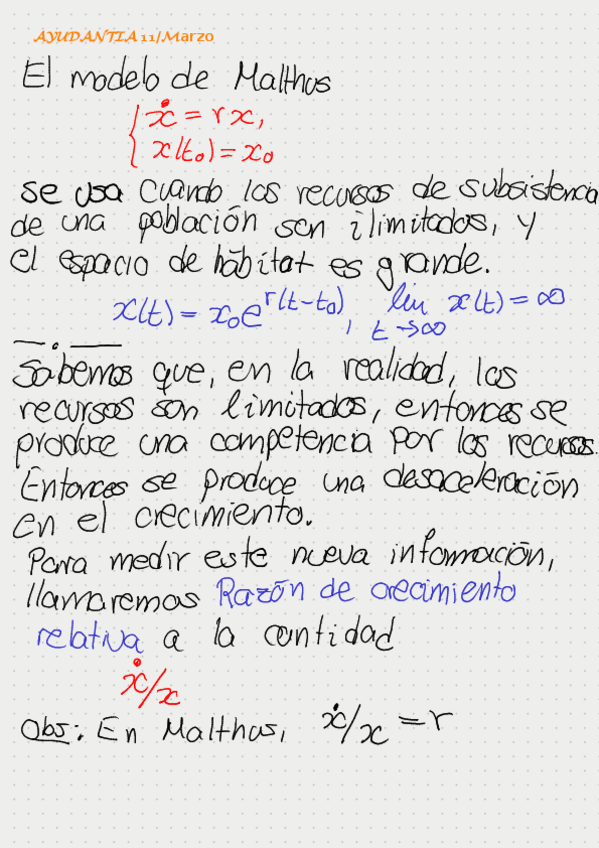 AYUDANTIA 11/Marzo
El modelo de Malthus
{ ẋ = rx,
x(t₀) = x₀
se usa cuando los recursos de subsistencia
de una población son ilimitados, y
el espacio de hábitat es grande.
x(t) = x₀e^{r(t-t₀)}, lim t→∞ x(t) = ∞
Sabemos que, en la realidad, los
recursos son limitados, entonces se
produce una competencia por los recursos.
Entonces se produce una desaceleración
en el crecimiento.
Para medir este nueva información,
llamaremos Razón de crecimiento
relativa a la cantidad
ẋ/x
Obs: En Malthus, ẋ/x = r